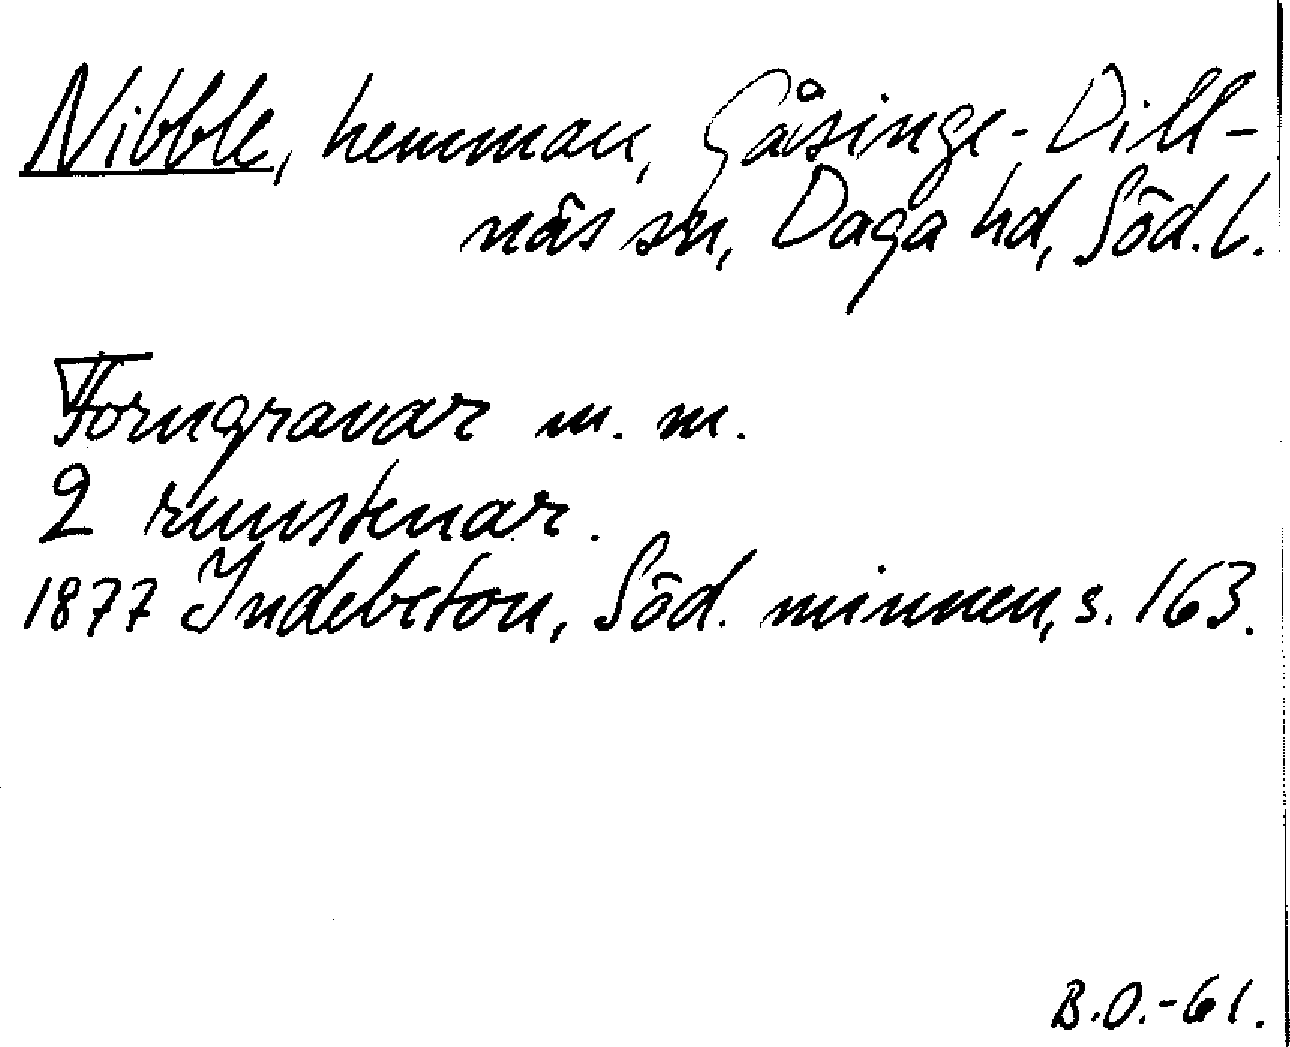 Nibble, hemman, Gåsinge-Dill-
näs sn, Daga hd, Söd. l.
Forngravar m. m.
2 runstenar.
1877 Indebetou, Söd. minnen, s. 163.
B.O.-61.